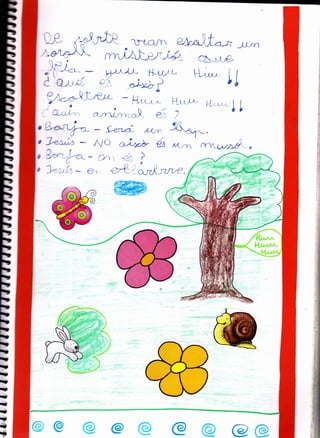 De sobte van escoltar un
soroll misteriós que
feia - Huu Huu Huu!!
¿Què és això?
escolteu - Huu Huu Huu!!
¿Quin animal és?
• Borja - Serà un llop.
• Jesús - NO això és un mussol.
• Borja - on és?
• Jesús - en
Huu
Huu
Huu